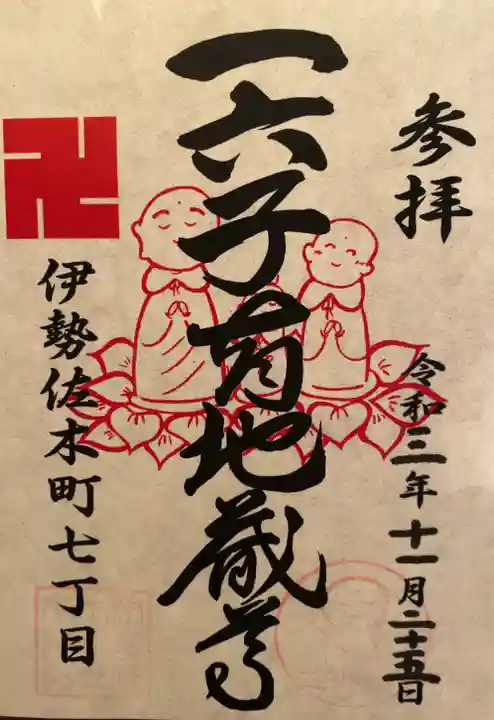 参拝
令和三年十一月二十五日
一六子育地蔵尊
卍
伊勢佐木町七丁目